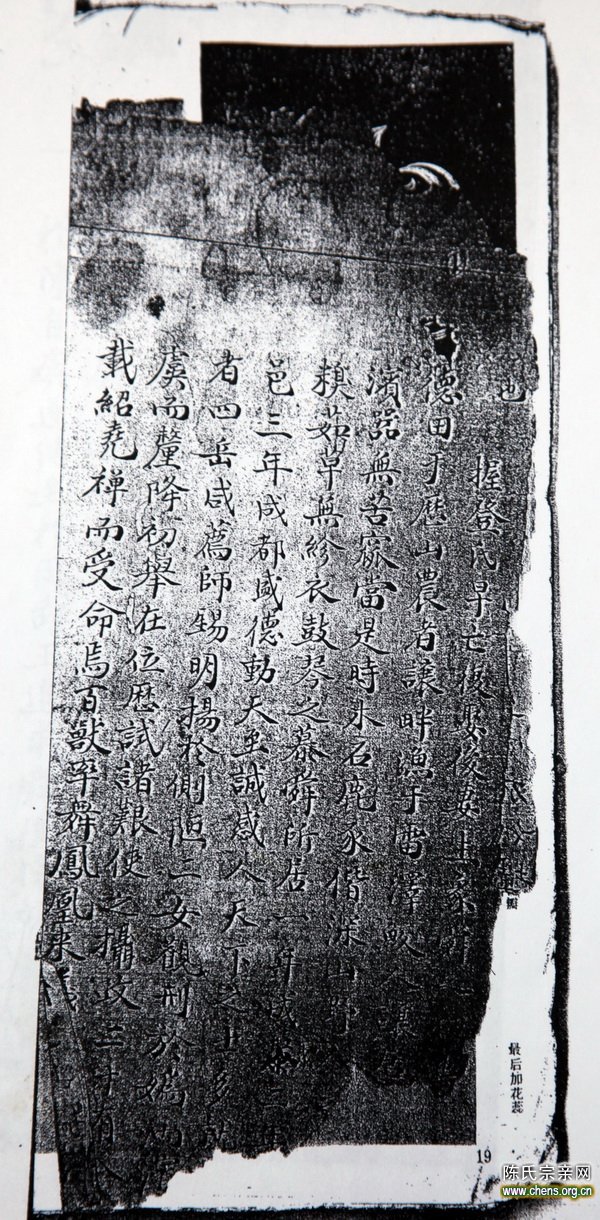 也
握登氏早亡後娶後妻生象
德田于歷山農者讓畔漁于雷澤畋人讓
濱器無苦窳當是時木石鹿豕偕深山野
糗茹草無紾衣鼓琴之慕舜所居一年成聚二
邑三年成都盛德動天至諴感人天下之士多就
者四岳咸薦師錫明揚於側陋二女觀刑於媯汭
虞而釐降初舉在位歷試諸艱使之攝政三十有八
載紹堯禪而受命焉百獸率舞鳳凰來儀
最后加花蕊
19
陈氏宗亲网
www.chens.org.cn